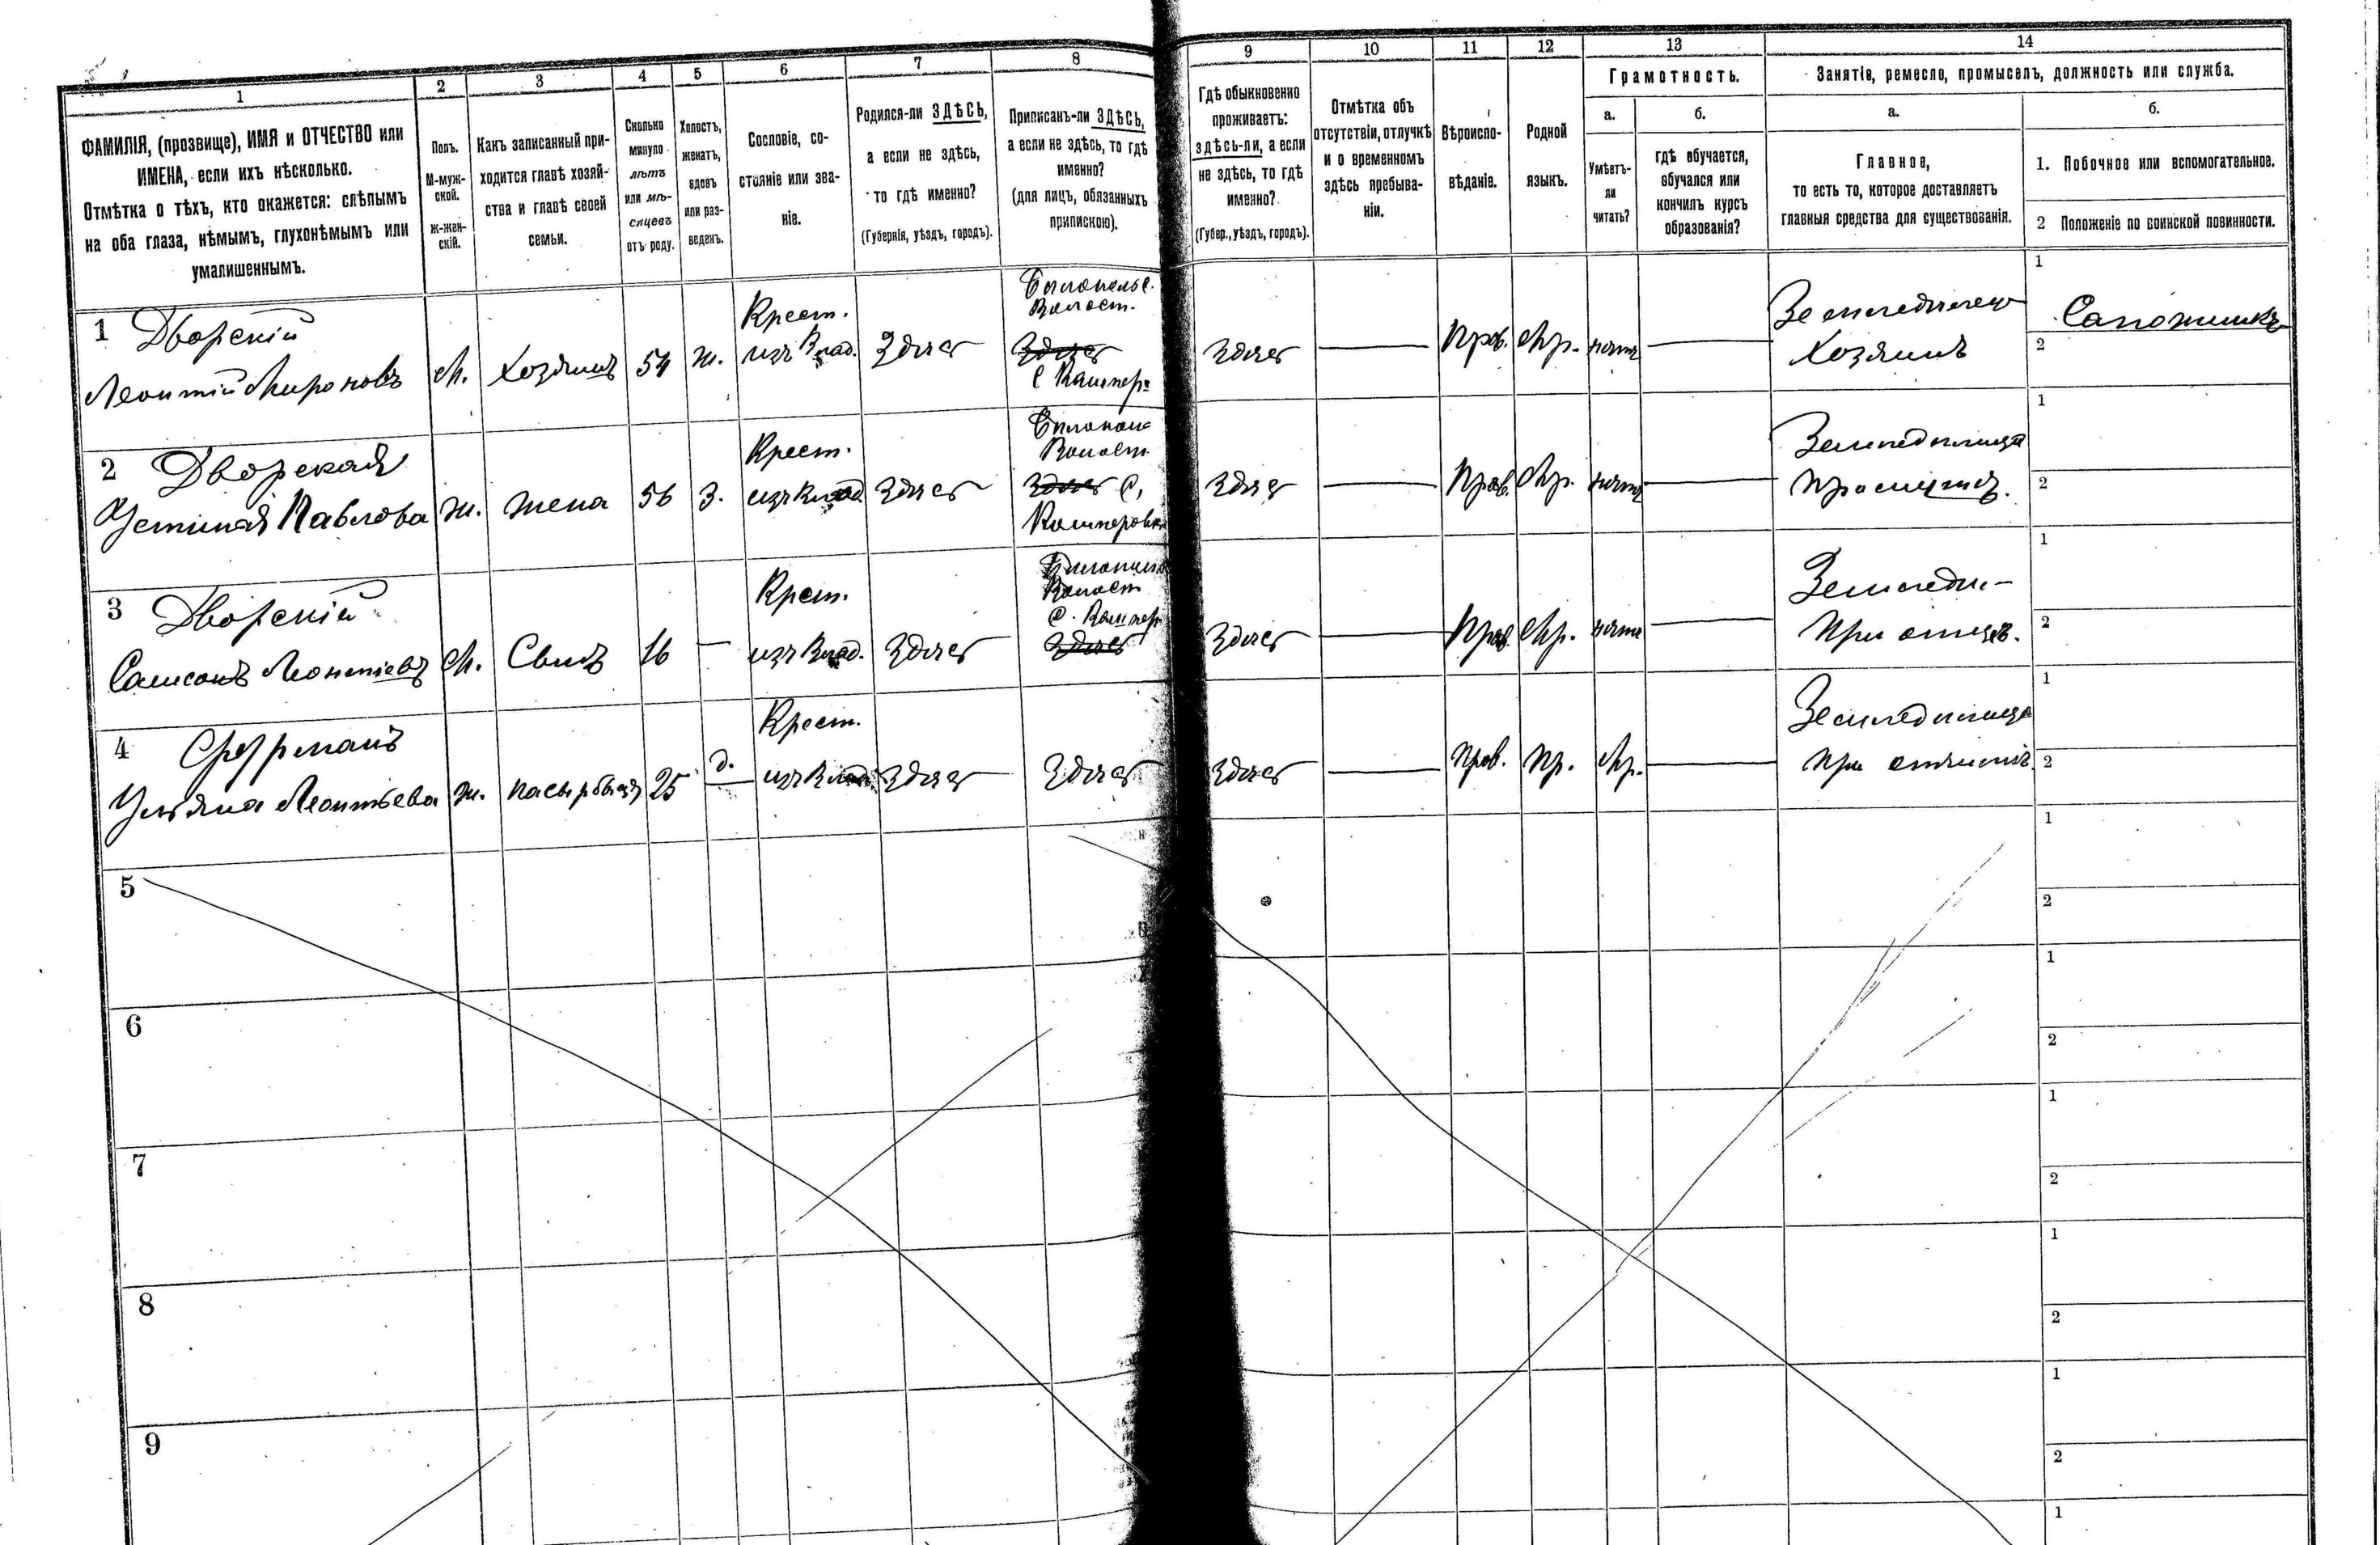 1
2
3
4
5
6
7
8
ФАМИЛІЯ, (прозвище), ИМЯ и ОТЧЕСТВО или
ИМЕНА, если ихъ нѣсколько.
Отмѣтка о тѣхъ, кто окажется: слѣпымъ
на оба глаза, нѣмымъ, глухонѣмымъ или
умалишеннымъ.
Полъ.
М-муж-
ской.
Ж-жен-
скій.
Какъ записанный при-
ходится главѣ хозяй-
ства и главѣ своей
семьи.
Сколько
минуло
лѣтъ
или мѣ-
сяцевъ
отъ роду.
Холостъ,
женатъ,
вдовъ
или раз-
веденъ.
Сословіе, со-
стояніе или зва-
ніе.
Родился-ли ЗДѢСЬ,
а если не здѣсь,
то гдѣ именно?
(Губернія, уѣздъ, городъ).
Приписанъ-ли ЗДѢСЬ,
а если не здѣсь, то гдѣ
именно?
(для лицъ, обязанныхъ
припискою).
9
10
11
12
13
14
Гдѣ обыкновенно
проживаетъ:
здѣсь-ли, а если
не здѣсь, то гдѣ
именно?
(Губер., уѣздъ, городъ).
Отмѣтка объ
отсутствіи, отлучкѣ
и о временномъ
здѣсь пребыва-
ніи.
Вѣроиспо-
вѣданіе.
Родной
языкъ.
Грамотность.
а.
Умѣетъ-
ли
читать?
б.
гдѣ обучается,
обучался или
кончилъ курсъ
образованія?
Занятіе, ремесло, промыселъ, должность или служба.
а.
Главное,
то есть то, которое доставляетъ
главныя средства для существованія.
б.
1. Побочное или вспомогательное.
2 Положеніе по воинской повинности.
1 Дворскій
Леонтій Мироновъ
М.
Хозяинъ
54
ж.
Крест.
изъ Влад.
Здѣсь
Волост.
Здѣсь
Здѣсь
Прав.
Мр.
нѣтъ
Хозяинъ
1
Сапожникъ
2
2 Дворская
Устинія Павлова
ж.
жена
56
З.
Крест.
изъ Влад.
Здѣсь
Волост.
Здѣсь С,
Здѣсь
Прав.
Мр.
нѣтъ
Земледѣлица
1
2
3 Дворскій
Самсонъ Леонтіевъ
М.
Сынъ
16
Крест.
изъ Влад.
Здѣсь
Волост
Здѣсь
Здѣсь
Прав.
Мр.
нѣтъ
Земледѣл-
При отцѣ.
1
2
4
Ульяна Леонтьева
ж.
25
д.
Крест.
изъ Влад.
Здѣсь
Здѣсь
Здѣсь
Прав.
Мр.
Земледѣлица
При
1
2
5
1
2
6
1
2
7
1
2
8
1
2
9
1
2
1